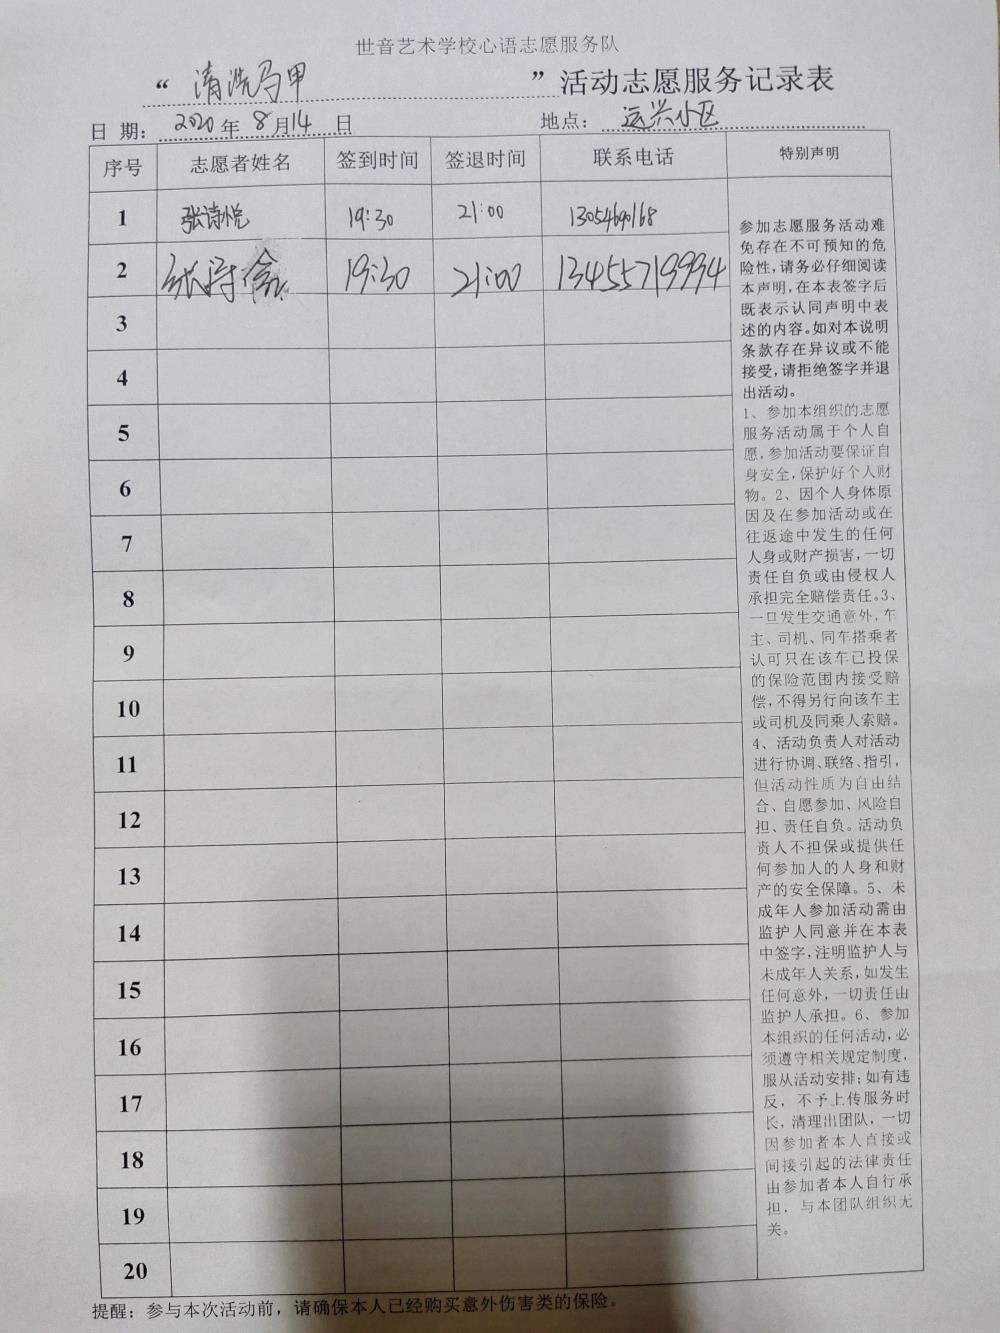 世音艺术学校心语志愿服务队
“清洗马甲”活动志愿服务记录表
日 期: 2020年8月14日 地点: 运兴小区
序号 志愿者姓名 签到时间 签退时间 联系电话 特别声明
1 张诗悦 19:30 21:00 13054690168
2 张 19:30 21:00 13455719994
3
4
5
6
7
8
9
10
11
12
13
14
15
16
17
18
19
20
参加志愿服务活动难
免存在不可预知的危
险性,请务必仔细阅读
本声明,在本表签字后
既表示认同声明中表
述的内容。如对本说明
条款存在异议或不能
接受,请拒绝签字并退
出活动。
1、参加本组织的志愿
服务活动属于个人自
愿,参加活动要保证自
身安全,保护好个人财
物。2、因个人身体原
因及在参加活动或在
往返途中发生的任何
人身或财产损害,一切
责任自负或由侵权人
承担完全赔偿责任。3、
一旦发生交通意外,车
主、司机、同车搭乘者
认可只在该车已投保
的保险范围内接受赔
偿,不得另行向该车主
或司机及同乘人索赔。
4、活动负责人对活动
进行协调、联络、指引,
但活动性质为自由结
合、自愿参加、风险自
担、责任自负。活动负
责人不担保或提供任
何参加人的人身和财
产的安全保障。5、未
成年人参加活动需由
监护人同意并在本表
中签字,注明监护人与
未成年人关系,如发生
任何意外,一切责任由
监护人承担。6、参加
本组织的任何活动,必
须遵守相关规定制度,
服从活动安排;如有违
反,不予上传服务时
长,清理出团队,一切
因参加者本人直接或
间接引起的法律责任
由参加者本人自行承
担,与本团队组织无
关。
提醒: 参与本次活动前,请确保本人已经购买意外伤害类的保险。